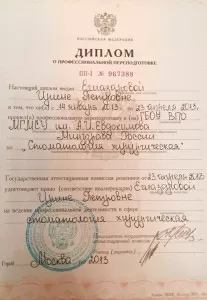 РОССИЙСКАЯ ФЕДЕРАЦИЯ
ДИПЛОМ
О ПРОФЕССИОНАЛЬНОЙ ПЕРЕПОДГОТОВКЕ
ПП-I № 967389
Настоящий диплом выдан
Ирине Петровне
в том, что он(а) с 19 января 2013 г. по 23 апреля 2013 г.
прошел(а) профессиональную переподготовку в (на) ГБОУ ВПО
МГМСУ им. А.И. Евдокимова
Минздрава России
"Стоматология хирургическая"
Государственная аттестационная комиссия решением от 23 апреля 2013
удостоверяет право (соответствие квалификации)
Ирине Петровне
на ведение профессиональной деятельности в сфере
стоматология хирургическая
Город Москва 2013